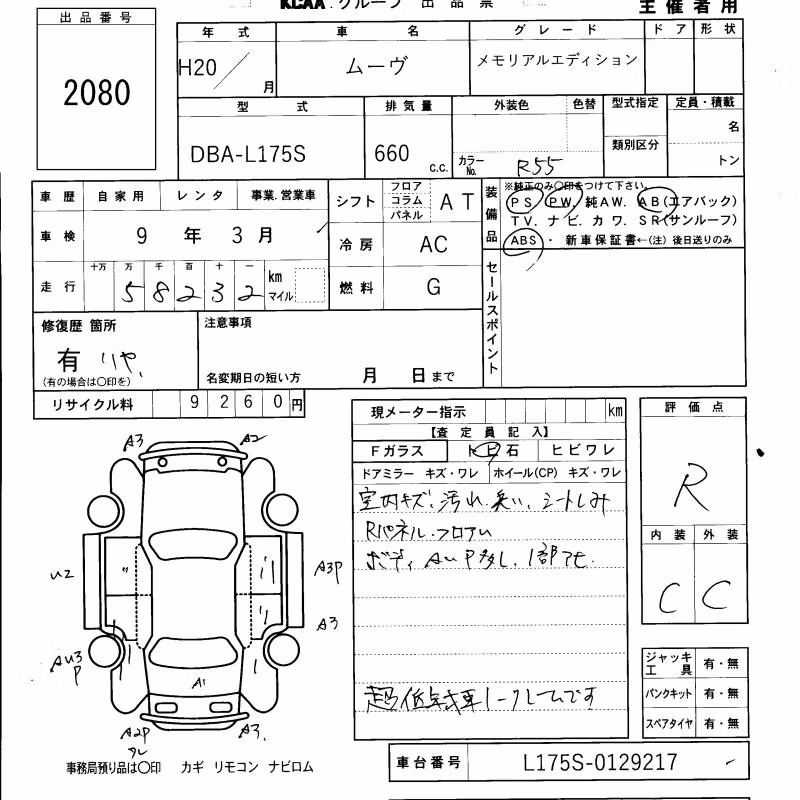 KCAA.グループ 出品票
主催者用
出品番号
2080
年式 車名 グレード ドア 形状
H20/ 月 ムーヴ メモリアルエディション
型式 排気量 外装色 色替 型式指定 定員・積載
DBA-L175S 660 c.c. カラーNo. R55 類別区分 名
トン
車歴 自家用 レンタ 事業.営業車
車検 9年3月
走行 十万 万 千 百 十 一
58232 km マイル
シフト フロア コラム パネル AT
冷房 AC
燃料 G
装備品
※純正のみ○印をつけて下さい。
PS. PW. 純AW. AB(エアバック)
TV. ナビ. カワ. SR(サンルーフ)
ABS・新車保証書←(注)後日送りのみ
セールスポイント
修復歴 箇所
有 リヤ,
(有の場合は○印を)
注意事項
名変期日の短い方 月 日まで
リサイクル料 9260円
現メーター指示 km
【査定員記入】
Fガラス トビ石 ヒビワレ
ドアミラー キズ・ワレ ホイール(CP) キズ・ワレ
室内キズ、汚れ、臭い、シートしみ
Rパネル.フロアム
ボディ AUP多し、1部
超低年式車ノークレームです
評価点
R
内装 外装
C C
ジャッキ 工具 有・無
パンクキット 有・無
スペアタイヤ 有・無
A3 A2
U2
A3P
A3
AU3
P
A1
A2P
A3.
事務局預り品は○印 カギ リモコン ナビロム
車台番号 L175S-0129217